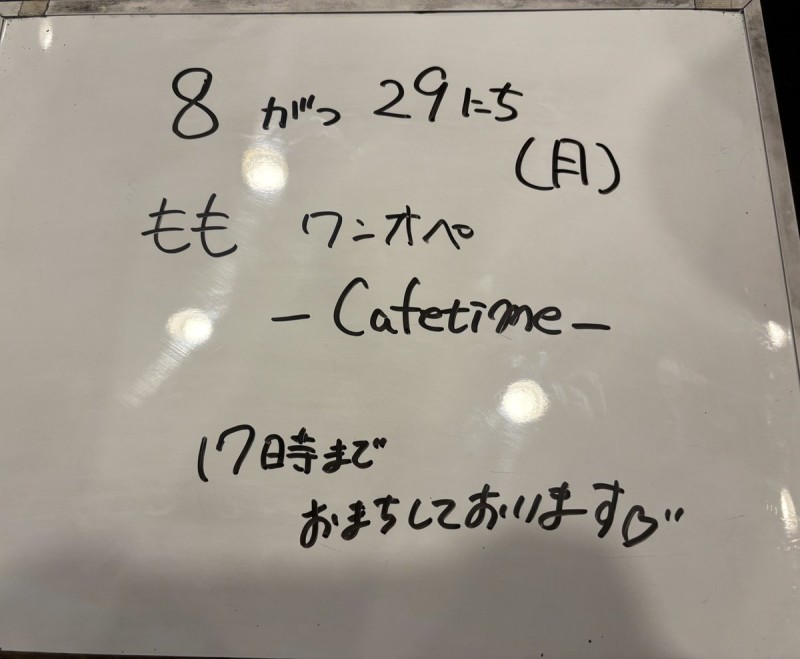 8がつ29にち
(月)
もも ワンオペ
-Cafetime-
17時まで
おまちしております♡"